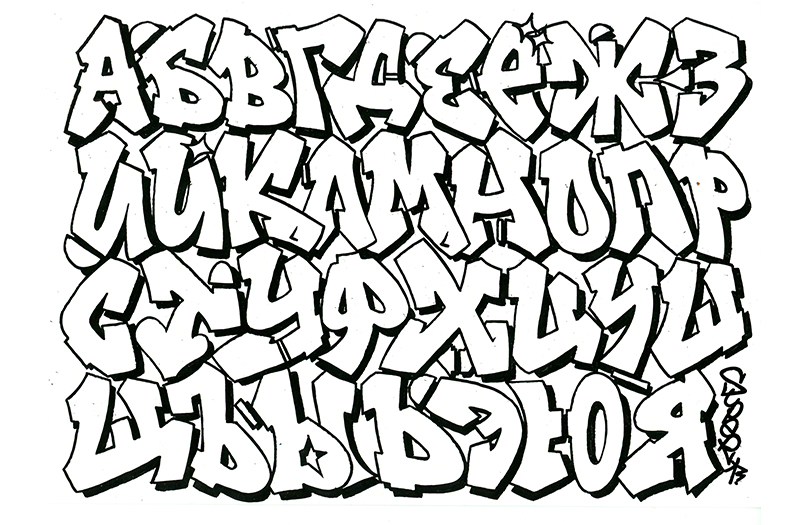 АБВГДЕЁЖЗ
ИЙКЛМНОПР
СТУФХЦЧШ
ЩЪЫЬЭЮЯ